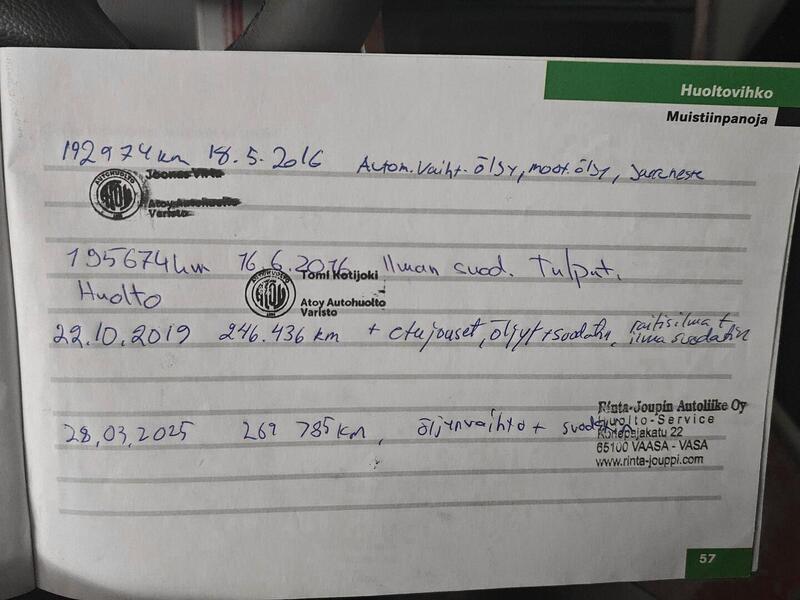 Huoltovihko
Muistiinpanoja
192974km 18.5.2016 Autom.vaiht.öljy, moot.öljy, jarruneste
AUTOHUOLTO
ATOY
Joonas Virta
Atoy Autohuolto
Varisto
195674km 16.6.2016 Ilman suod. Tulpat.
Huolto
AUTOHUOLTO
ATOY
Tomi Kotijoki
Atoy Autohuolto
Varisto
22.10.2019 246.436 km + etujouset, öljyt+suodatin, raitisilma +
ilmasuodatin
28,03,2025 269 785km, öljynvaihto + suodatin
Rinta-Joupin Autoliike Oy
Huolto-Service
Konepajakatu 22
65100 VAASA - VASA
www.rinta-jouppi.com
57